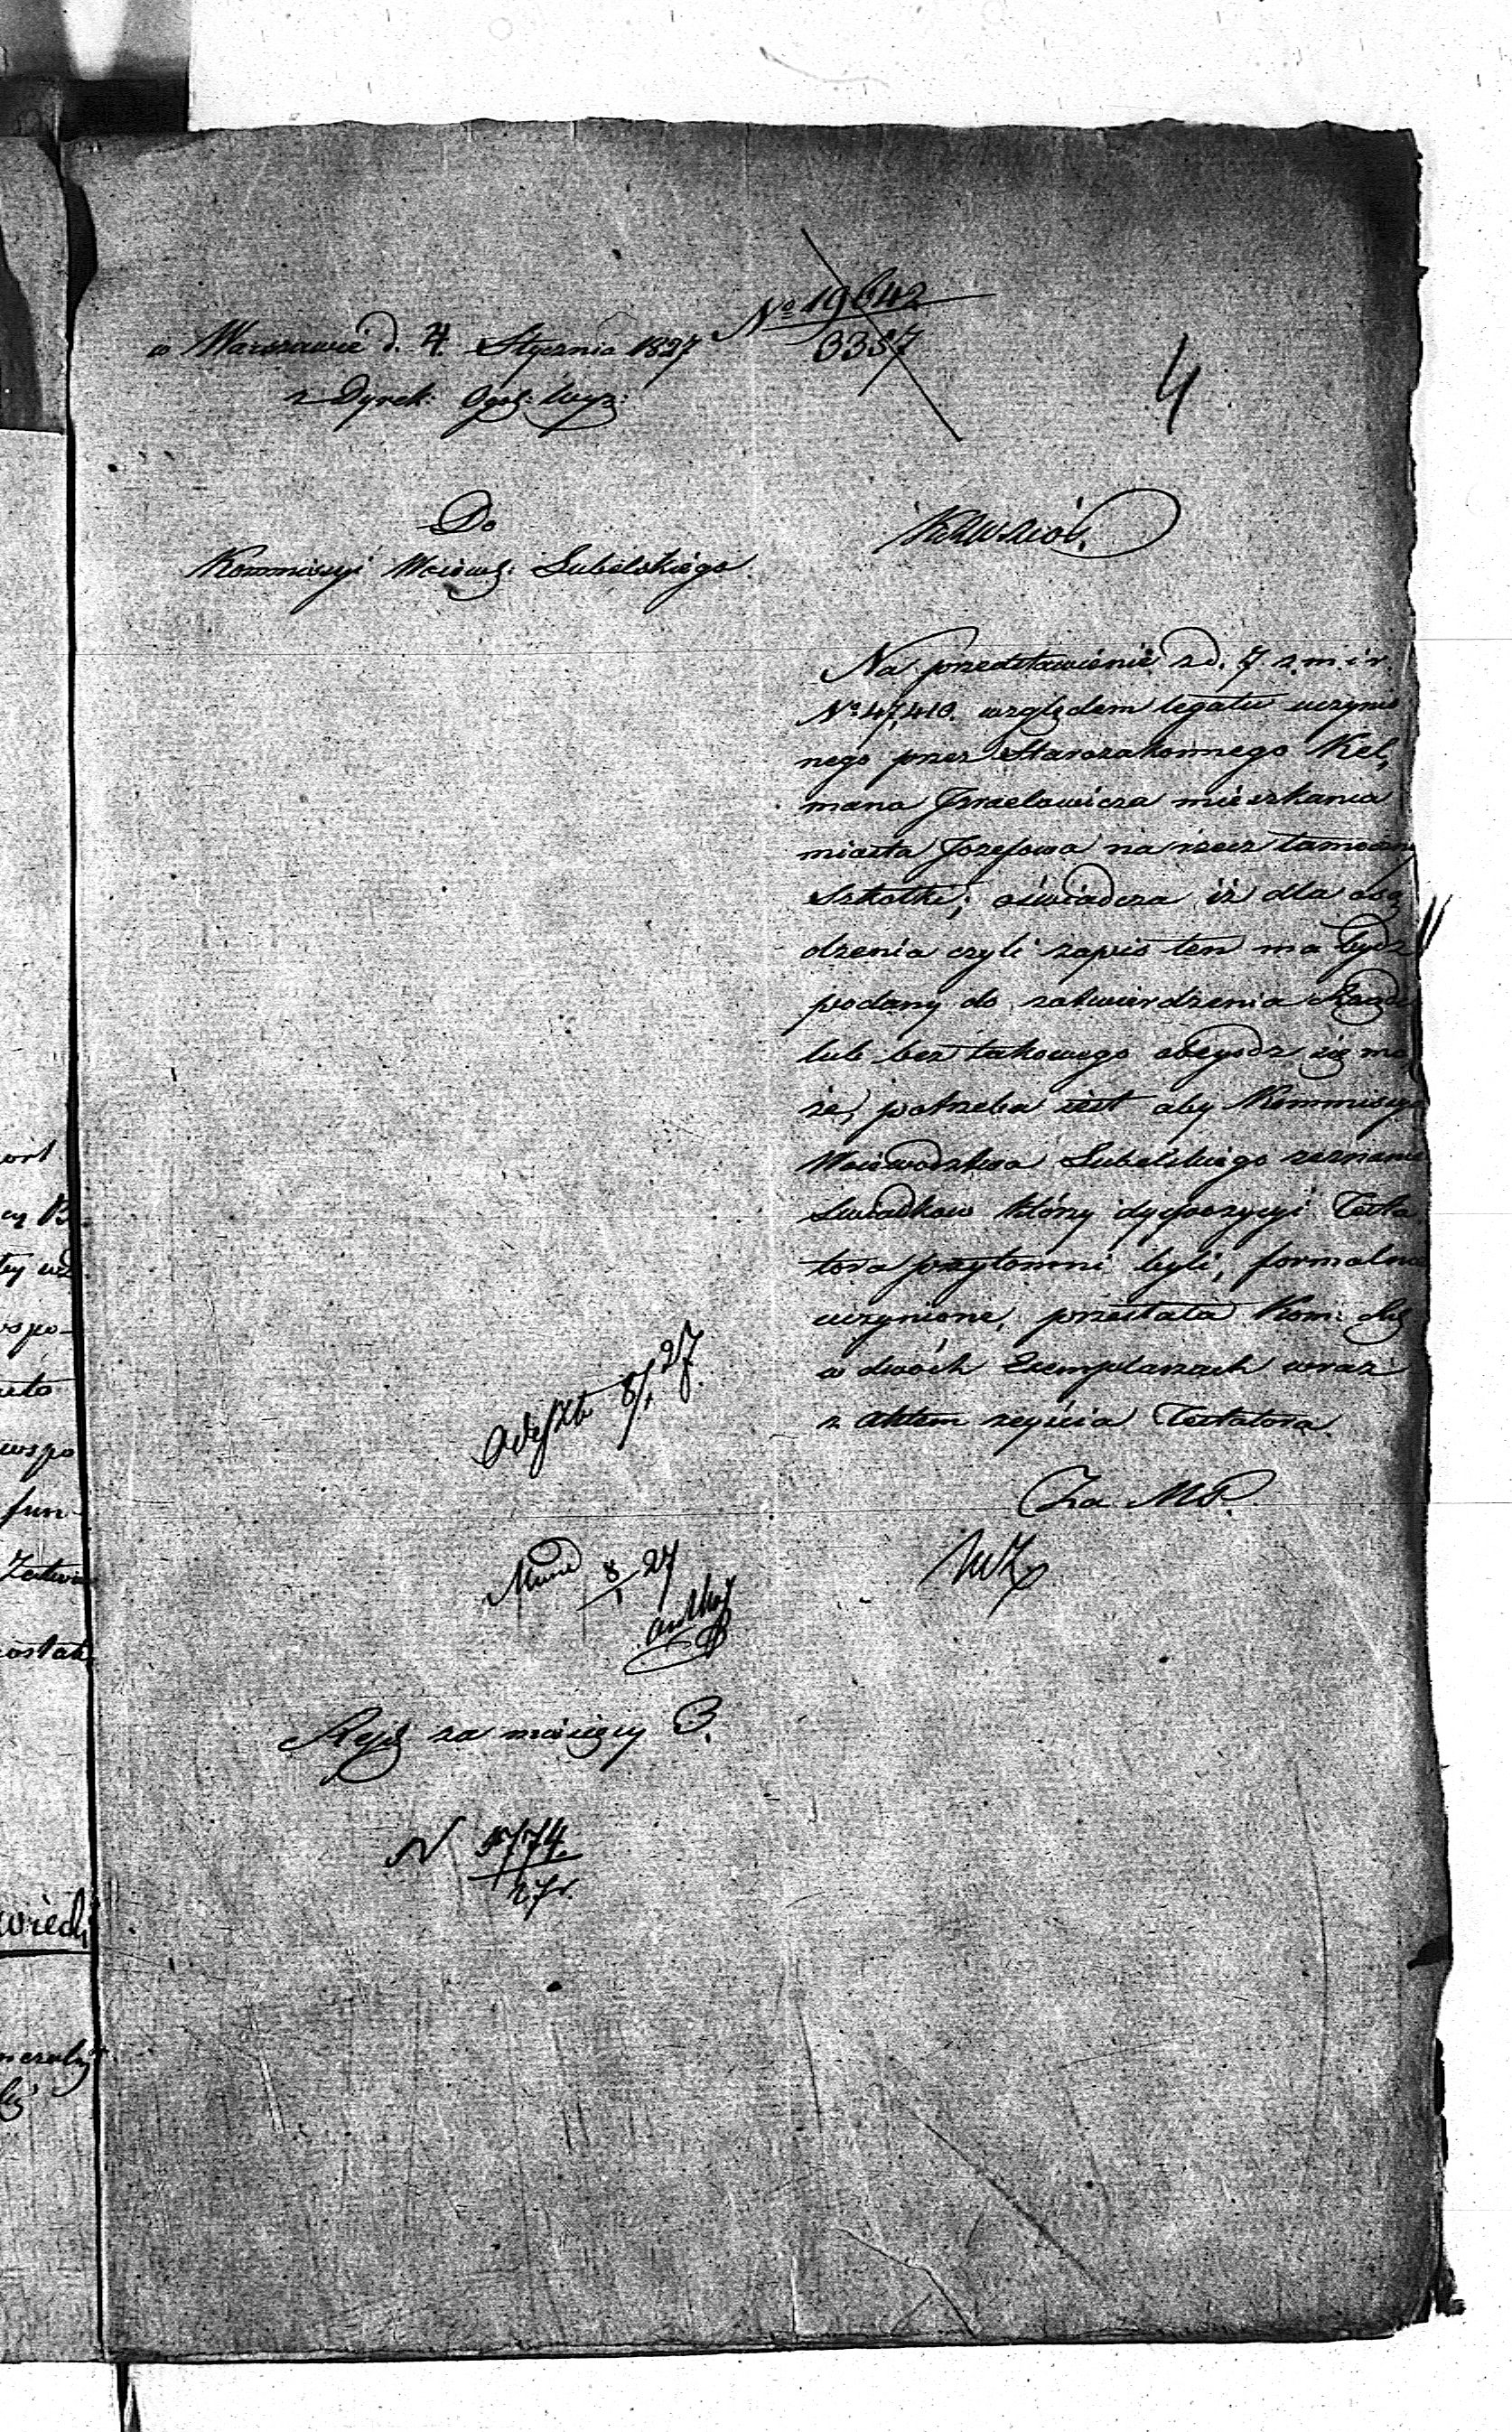 w Warszawie d. 4. Stycznia 1827
z Dyrek: Ogól: Wyz:
Nº 19642
3357
4
Do
Kommissyi Woiewó: Lubelskiego
Na przedstawienie z d. 7. z. m. i r.
Nº 47,410. względem legatu uczynio
nego przez Starozakonnego Kel,
mana Jzraelowicza mieszkanca
miasta Jozefowa na rzecz
szkołki; oświadcza iż dla
dzenia czyli zapis ten ma bydz
podany do zatwierdzenia Rządu
lub bez takowego obeyśdz się mo
że, potrzeba iest aby Kommissya
Woiewodztwa Lubelskiego zeznanie
świadkow którzy dyspozycyi Testa
tora przytomni byli, formalne
uczynione, przesłała Kom:
w dwóch Exemplarzach wraz
z aktem zeyścia Testatora.
Za M. P.
8/1 27.
Mund 8/1 27
Rejs za miesięcy 3.
N 1774.
27 r.
ort
cy B
wspo-
wspo
fun-
ostat